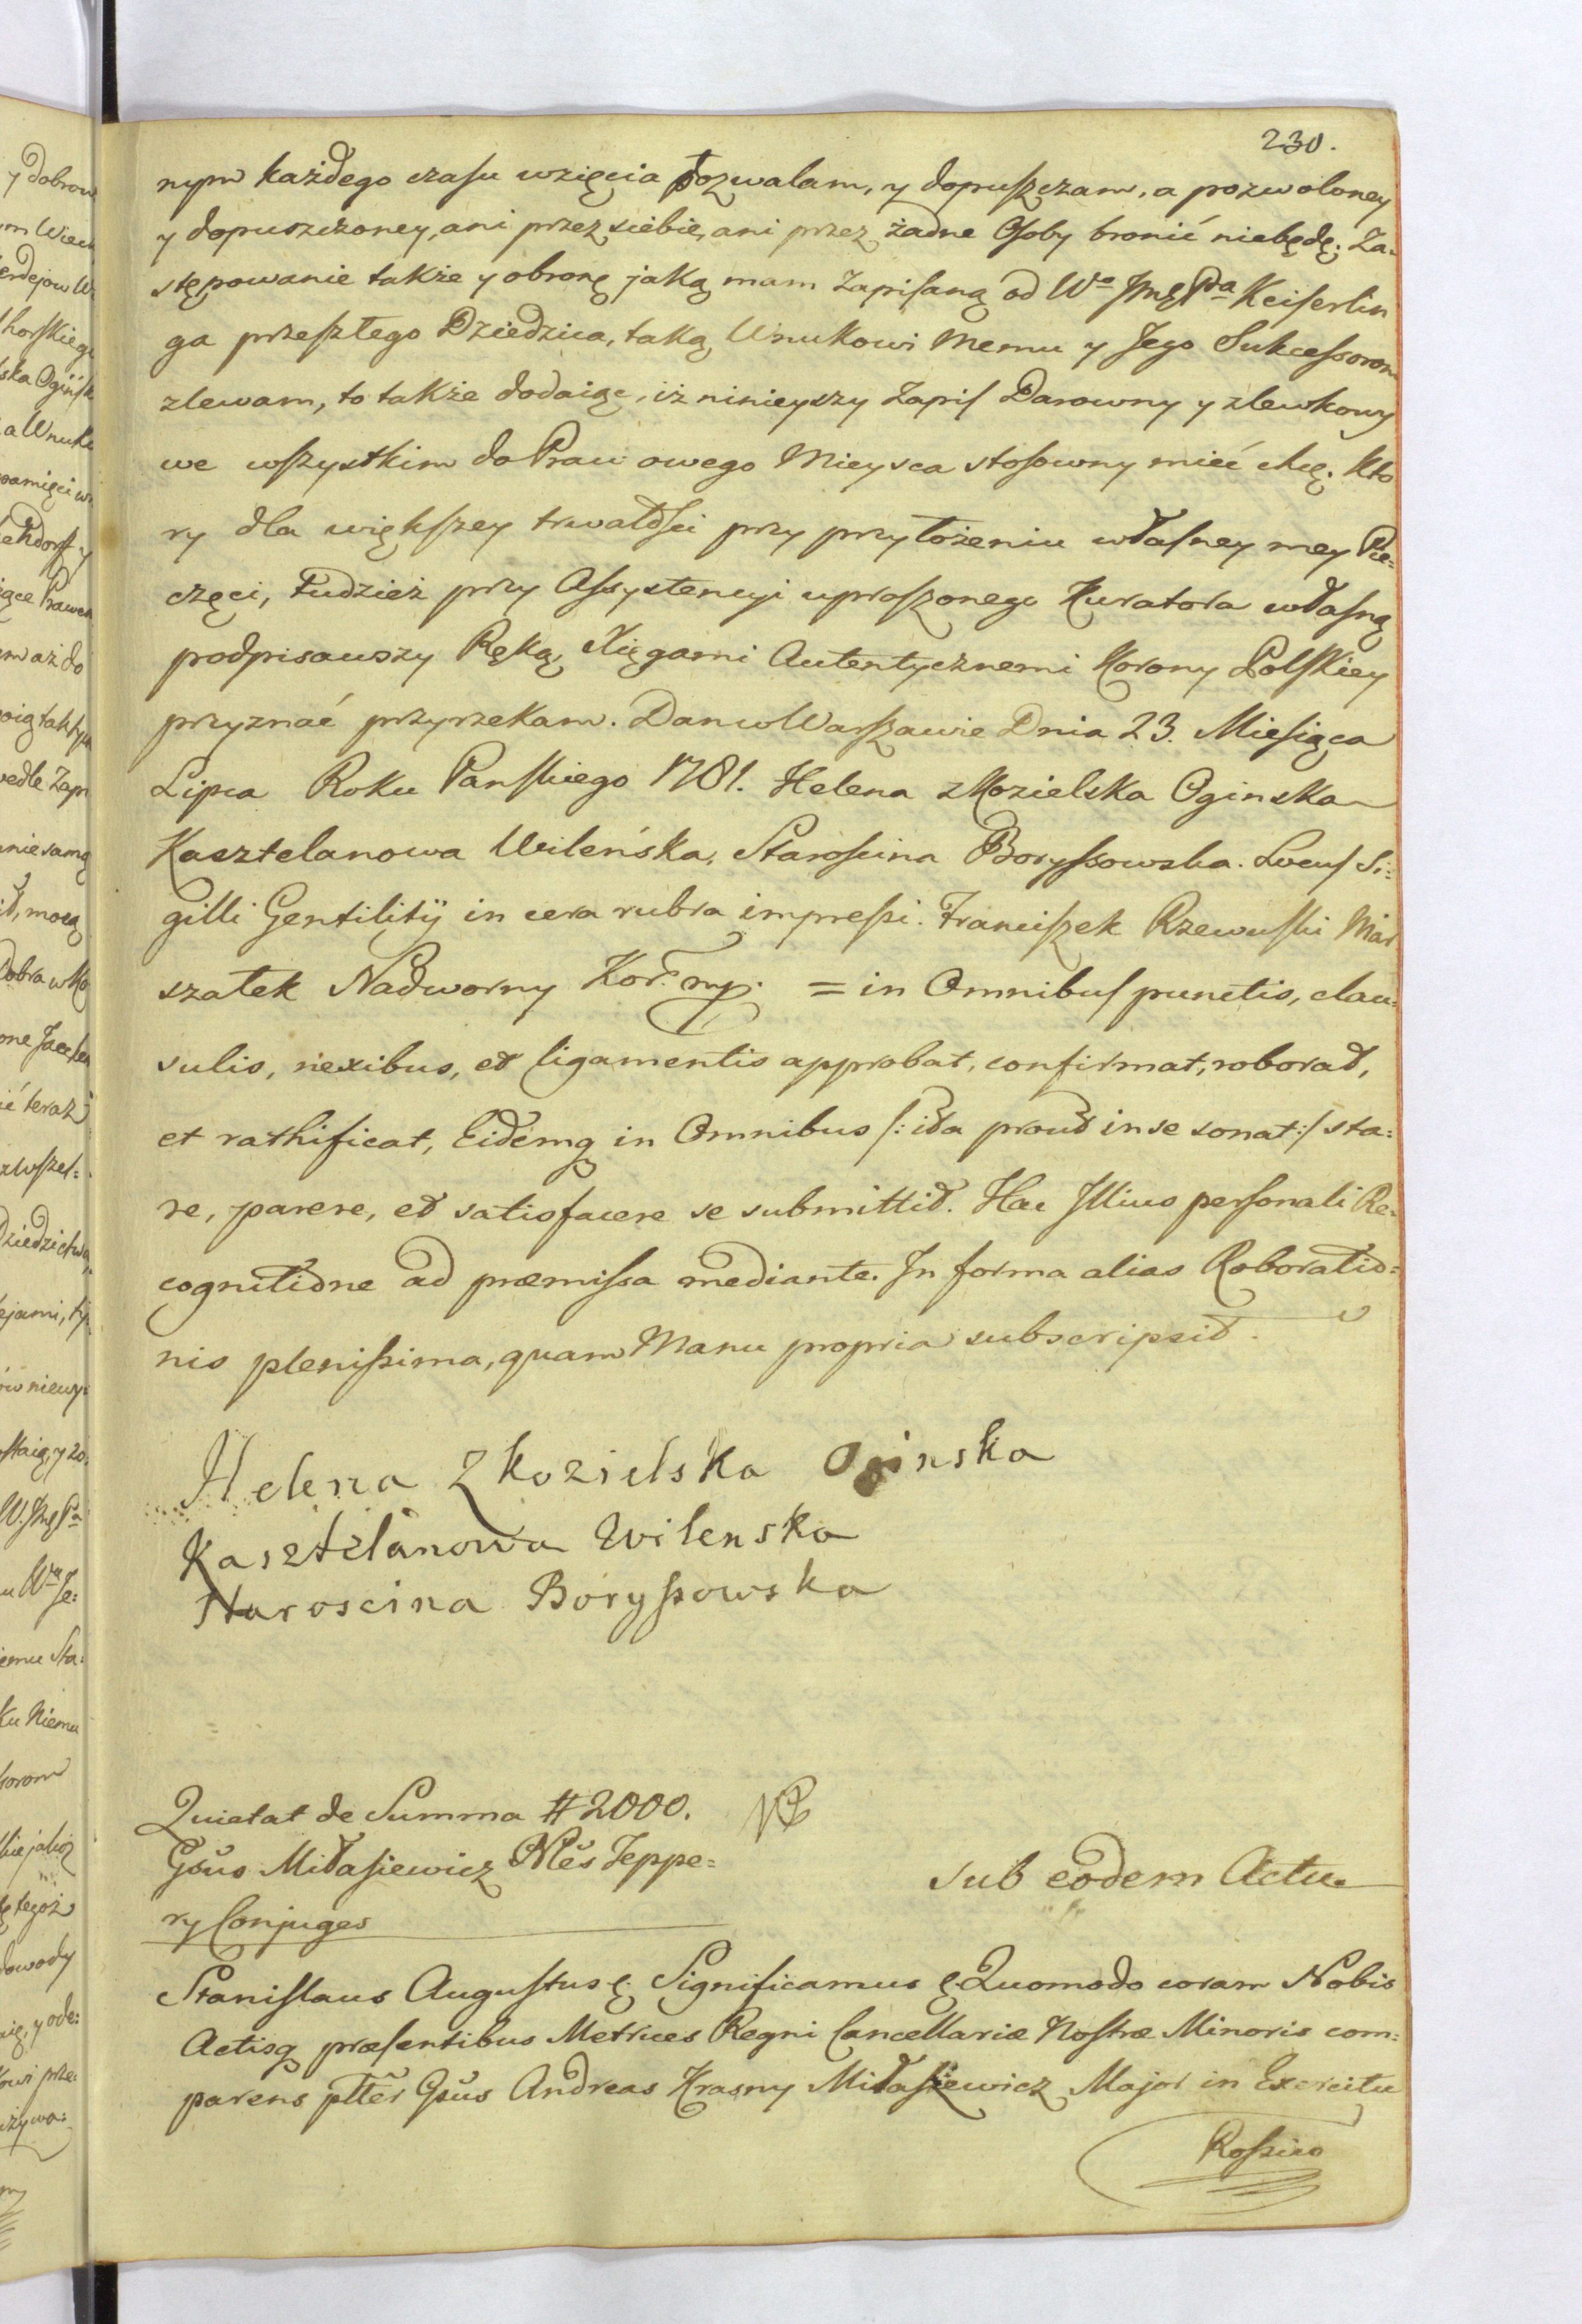 230.
nym każdego czasu wzięcia pozwalam, y dopuszczam, a pozwoloney
y dopuszczoney, ani przez siebie, ani przez żadne Osoby bronić niebędę. Za-
stępowanie także y obronę jaką mam Zapisaną od Wo Jmę Pa Keiserlin
ga przeszłego Dziedzica, taką Wnukowi Memu y Jego Sukcessorom
zlewam, to także dodaięc, iż ninieyszy Zapis Darowny y zlewkowy
we wszystkim do Praw owego Mieysca stosowny mieć chcę. Kto
ry dla większey trwałości przy przyłożeniu własney mey Pie=
częci, Tudzież przy Assystencyi uproszonego Kuratora własną
podpisawszy Ręką, Xięgami Autentycznemi Korony Polskiey
przyznać przyrzekam. Dan w Warszawie Dnia 23. Miesiąca
Lipca Roku Panskiego 1781. Helena z Kozielska Oginska
Kasztelanowa Wileńska, Starościna Boryssowska. Locus Si=
gilli Gentilitÿ in cera rubra impressi. Franciszek Rzewuski Mar
szałek Nadworny Kor. mp. = in Omnibus punctis, clau=
sulis, nexibus, et ligamentis approbat, confirmat, roborat,
et rathificat, Eidemq in Omnibus /: ita prout in se sonat :/ sta=
re, parere, et satisfacere se submittit. Hac Illius personali Re=
cognitione ad præmissa mediante. In forma alias Roboratio=
nis plenissima, quam Manu propria subscripsit.
Helena Zkozielska Oginska
Kasztelanowa Wilenska
Staroscina Boryssowska
Quietat de Summa # 2000.
Gsus Miłasiewicz Nles Zeppe=
ry Conjuges
sub eodem Actu
Stanislaus Augustus ę. Significamus ę. Quomodo coram Nobis
Actisq præsentibus Metrices Regni Cancellariæ Nostræ Minoris com=
parens pltter Gsus Andreas Krasny Miłasiewicz Major in Exercitu
Rossico